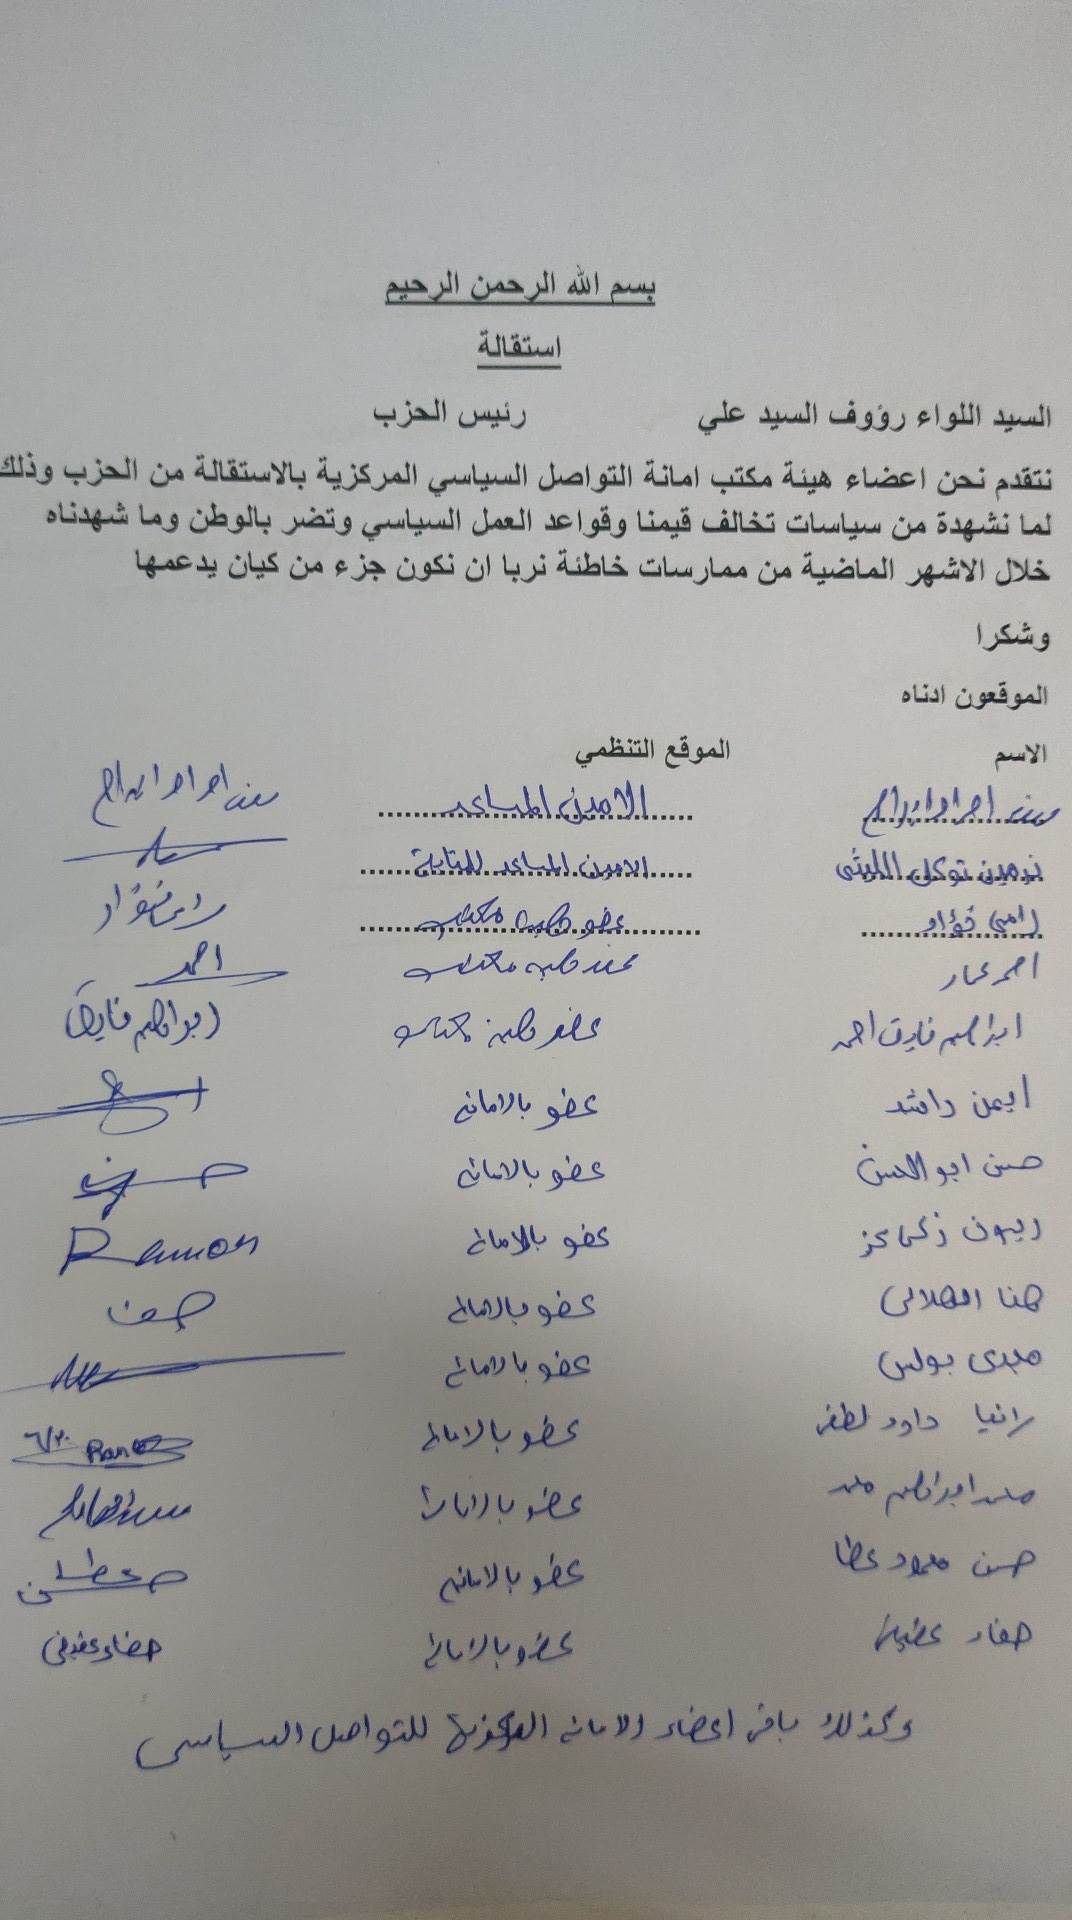 بسم الله الرحمن الرحيم
استقالة
السيد اللواء رؤوف السيد علي رئيس الحزب
نتقدم نحن اعضاء هيئة مكتب امانة التواصل السياسي المركزية بالاستقالة من الحزب وذلك
لما نشهدة من سياسات تخالف قيمنا وقواعد العمل السياسي وتضر بالوطن وما شهدناه
خلال الاشهر الماضية من ممارسات خاطئة نربا ان نكون جزء من كيان يدعمها
وشكرا
الموقعون ادناه
الاسم الموقع التنظمي
الامين المساعد
نرمين توكل الليثى الامين المساعد للمتابعة
رامى فؤاد عضو هيئة مكتب
احمد عمار عضو هيئة مكتب احمد
ابراهيم فاروق احمد عضو هيئة مكتب
ايمن راشد عضو بالامانه
حسن ابو الحسن عضو بالامانه
ريمون زكى عضو بالامانه Ramon
هنا الهلالى عضو بالامانه
مجدى بولس عضو بالامانه
رانيا داود لطفى عضو بالامانه
محمد ابراهيم محمد عضو بالامانه
حسن محمود عطا عضو بالامانه
عضو بالامانه
وكذلك باقى اعضاء الامانه المركزية للتواصل السياسى